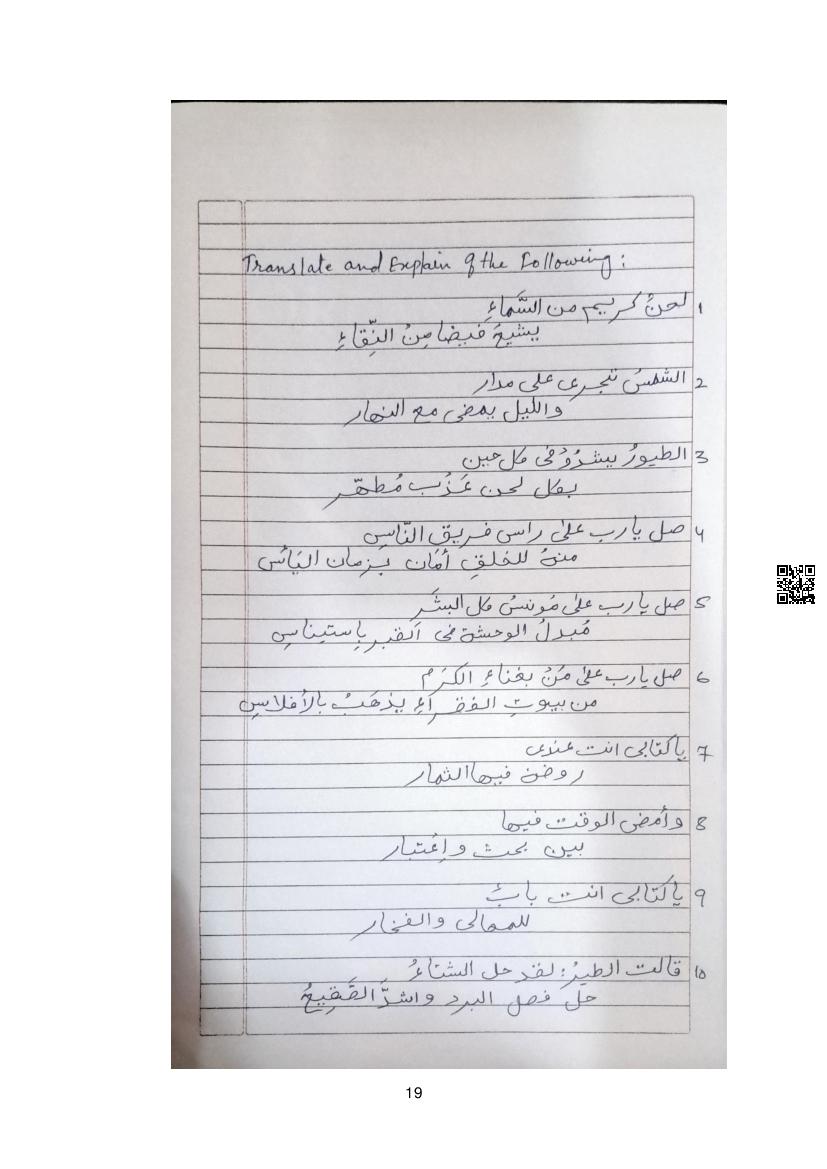 Translate and Explain of the Following:
1 لحنٌ كريم من السَّماءِ
يشيعُ فيضا مِنَ النِّقاءِ
2 الشمسُ تجرى على مدار
والليل يمضى مع النهار
3 الطيورُ يشدُوْ فى كل حين
بكل لحن عَذْبٍ مُطهّر
4 صل يارب على راس فريق النّاسِ
منهُ للخلقِ أمَان بزمان اليَأسِ
5 صل يارب على مُونسُ كل البشَرِ
مُبدلُ الوحشة فى القبر بِاستيناسِ
6 صل يارب على مَنْ بغناءِ الكرَم
من بيوتِ الفقراءِ يذهَبُ بالأفلاسِ
7 ياكتابى انت عندى
روضة فيها الثمار
8 وأمضى الوقت فيها
بين بحث وإعتبار
9 ياكتابى انت بابٌ
للمعالى والفخار
10 قالت الطيرُ: لقد حل الشتاءُ
حل فصل البرد واشدَّ الصَّقِيعُ
19